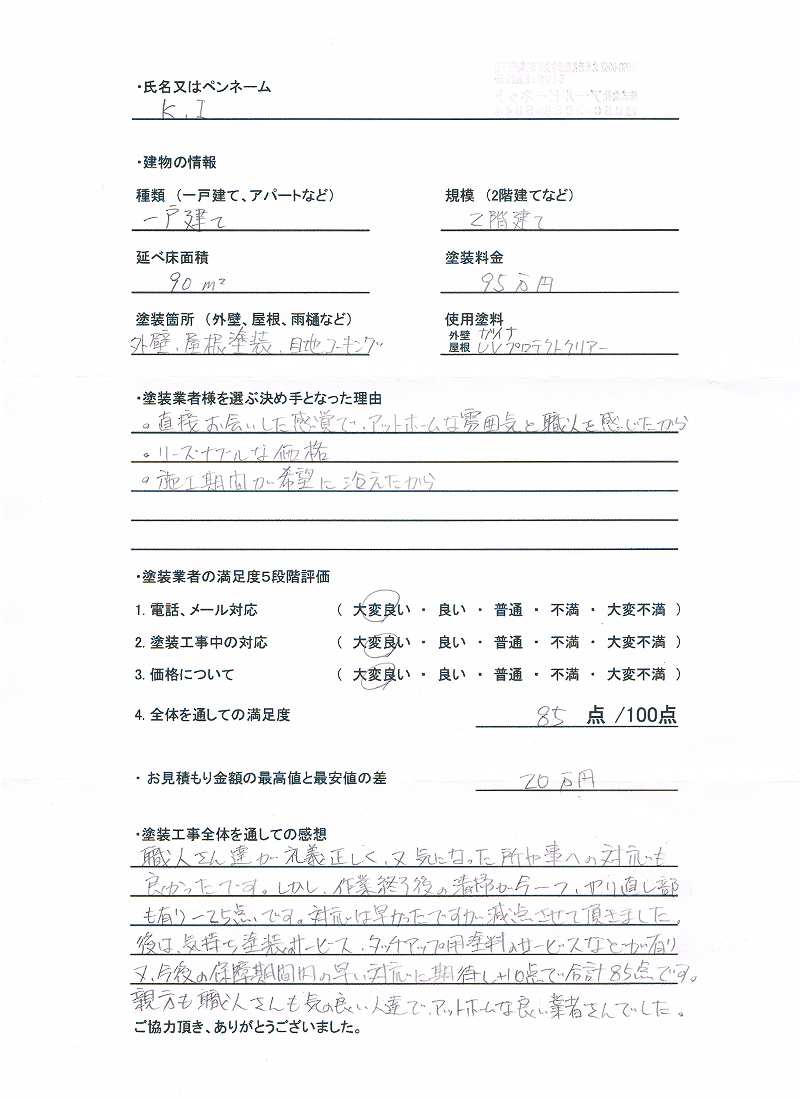 ・氏名又はペンネーム
K.I
・建物の情報
種類 (一戸建て、アパートなど) 規模 (2階建てなど)
一戸建て 2階建て
延べ床面積 塗装料金
90㎡ 95万円
塗装箇所 (外壁、屋根、雨樋など) 使用塗料
外壁 ガイナ
外壁、屋根塗装、目地コーキング 屋根 UVプロテクトクリアー
・塗装業者様を選ぶ決め手となった理由
。直接お会いした感覚で、アットホームな雰囲気と職人を感じたから
。リーズナブルな価格
。施工期間が希望に沿えたから
・塗装業者の満足度5段階評価
1. 電話、メール対応 ( 大変良い ・ 良い ・ 普通 ・ 不満 ・ 大変不満 )
2. 塗装工事中の対応 ( 大変良い ・ 良い ・ 普通 ・ 不満 ・ 大変不満 )
3. 価格について ( 大変良い ・ 良い ・ 普通 ・ 不満 ・ 大変不満 )
4. 全体を通しての満足度 85 点 /100点
・ お見積もり金額の最高値と最安値の差 20万円
・塗装工事全体を通しての感想
職人さん達が礼義正しく、又気になった所や事への対応も
良かったです。しかし、作業終了後の清掃が今一つ、やり直し部
も有り−25点です。対応は早かったですが減点させて頂きました。
後は、気持ち塗装サービス、タッチアップ用塗料のサービスなどが有り
又、今後の保障期間内の早い対応に期待し+10点で合計85点です。
親方も職人さんも気の良い人達で、アットホームな良い業者さんでした。
ご協力頂き、ありがとうございました。